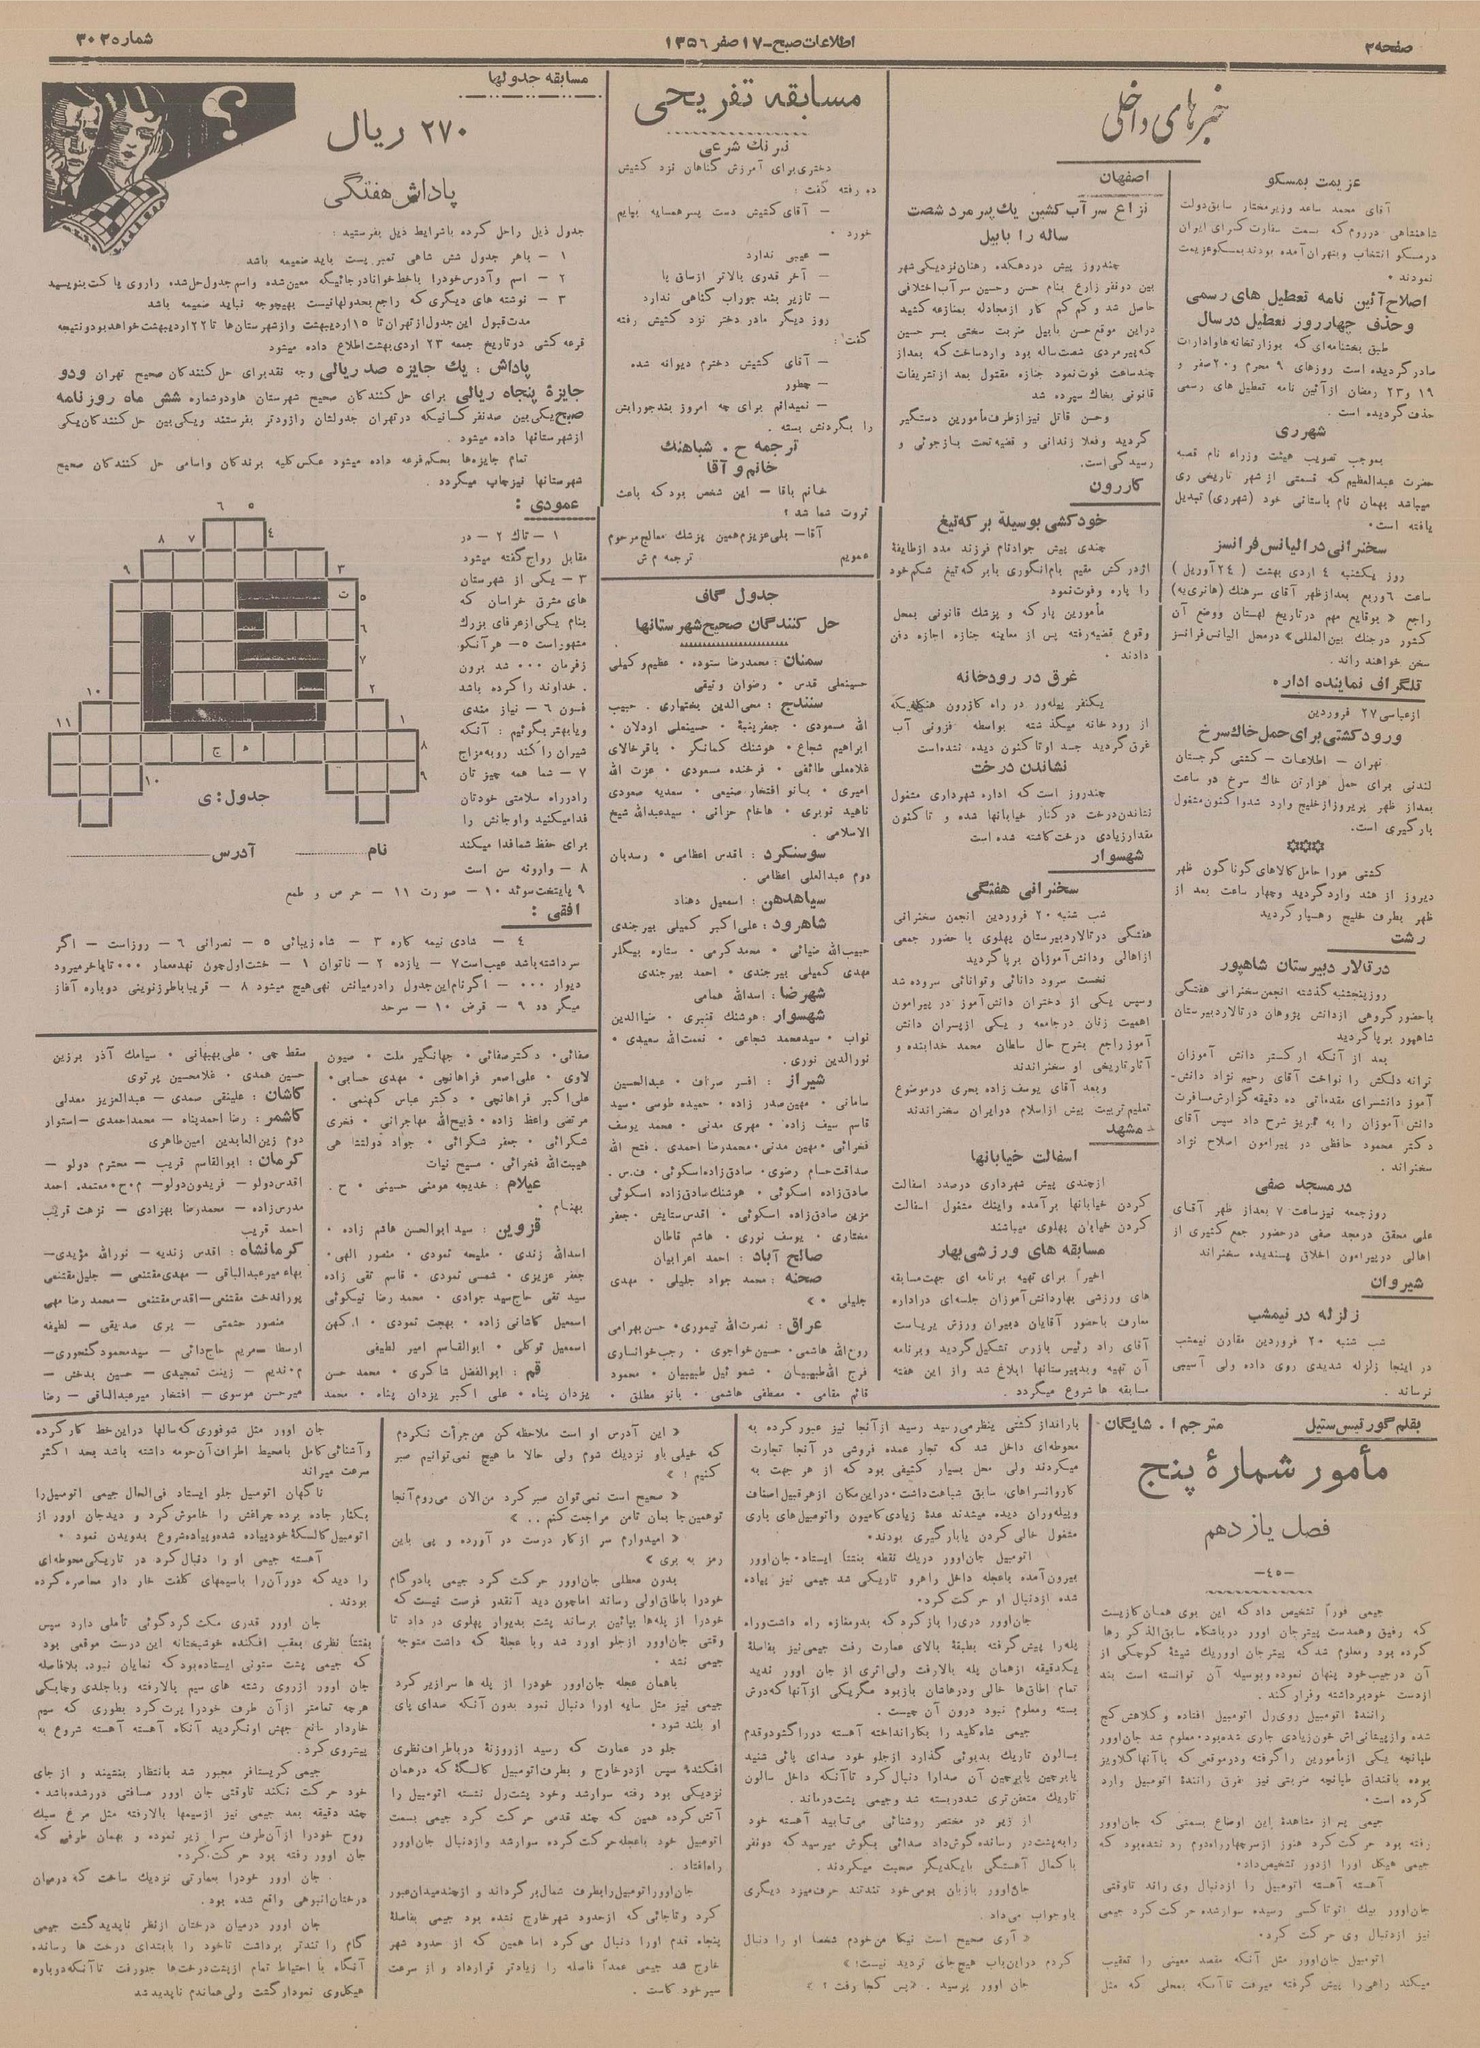 صفحه۲
اطلاعات صبح-۱۷ صفر ۱۳۵۶
شماره۳۰۲۵
خبرهای داخلی
عزیمت بمسکو
آقای محمد ساعد وزیرمختار سابق دولت
شاهنشاهی دررم که بسمت سفارت کبرای ایران
درمسکو انتخاب و بتهران آمده بودند بمسکو عزیمت
نمودند •
اصلاح آئین نامه تعطیل های رسمی
وحذف چهارروز تعطیل درسال
طبق بخشنامه‌ای که بوزارتخانه‌ها و ادارات
صادر گردیده است روزهای ۹ محرم و ۲۰صفر و
۱۹ و ۲۳ رمضان از آئین نامه تعطیل های رسمی
حذف گردیده است .
شهرری
بموجب تصویب هیئت وزراء نام قصبه
حضرت عبدالعظیم که قسمتی از شهر تاریخی ری
میباشد بهمان نام باستانی خود (شهرری) تبدیل
یافته است•
سخنرانی در الیانس فرانسز
روز یکشنبه ٤ اردی بهشت (۲٤آوریل)
ساعت ۶وربع بعدازظهر آقای سرهنك (هانری‌به)
راجع « بوقایع مهم درتاریخ لهستان ووضع آن
کشور درجنك بین‌المللی» درمحل الیانس‌فرانسز
سخن خواهند راند .
تلگراف نماینده اداره
ازعباسی ۲۷ فروردین
ورود کشتی برای حمل خاك سرخ
تهران – اطلاعات – کشتی گرجستان
لندنی برای حمل هزارتن خاك سرخ دو ساعت
بعداز ظهر پریروز ازخلیج وارد شد و اکنون مشغول
بارگیری است.
کشتی مورا حامل کالاهای گوناگون ظهر
دیروز از هند وارد گردید وچهار ساعت بعد از
ظهر بطرف خلیج رهسپار گردید
رشت
در تالار دبیرستان شاهپور
روزپنجشنبه گذشته انجمن سخنرانی هفتگی
باحضور گروهی ازدانش پژوهان درتالاردبیرستان
شاهپور برپا گردید
بعد از آنکه ارکستر دانش آموزان
ترانه دلکش را نواخت آقای رحیم نژاد دانش‌-
آموز دانشسرای مقدماتی ده دقیقه گزارش مسافرت
دانش آموزان را به تبریز شرح داد سپس آقای
دکتر محمود حافظی در پیرامون اصلاح نژاد
سخنراند .
درمسجد صفی
روزجمعه نیزساعت ۷ بعداز ظهر آقای
علی محقق درمجد صفی درحضور جمع کثیری از
اهالی درپیرامون اخلاق پسندیده سخنراند
شیروان
زلزله در نیمشب
شب شنبه ۲۰ فروردین مقارن نیمشب
در اینجا زلزله شدیدی روی داده ولی آسیبی
نرساند .
اصفهان
نزاع سر آب کشین یك پیر مرد شصت
ساله را بابیل
چندروز پیش دردهکده رهنان نزدیکی شهر
بین دونفر زارع بنام حسن وحسین سر آب اختلافی
حاصل شد و کم کم کار ازمجادله بمنازعه کشید
دراین موقع حسن بابیل ضربت سختی بسر حسین
که پیرمردی شصت ساله بود وارد ساخت که بعداز
چندساعت فوت نمود جنازه مقتول بعد ازتشریفات
قانونی بخاك سپرده شد
وحسن قاتل نیز ازطرف مأمورین دستگیر
گردید وفعلا زندانی و قضیه تحت بازجوئی و
رسیدگی است.
کازرون
خودکشی بوسیلهٔ برکه تیغ
چندی پیش جوادنام فرزند مدد ازطایفهٔ
اژدرکش مقیم بام‌انگوری بابرکه تیغ شکم خود
را پاره وفوت نمود
مأمورین پارکه و پزشك قانونی بمحل
وقوع قضیه رفته پس از معاینه جنازه اجازه دفن
دادند •
غرق در رودخانه
یکنفر پیله‌ور در راه کازرون هنگامیکه
از رود خانه میگذشته بواسطه فزونی آب
غرق گردید جسد او تا کنون دیده نشده است
نشاندن درخت
چندروز است که اداره شهرداری مشغول
نشاندن درخت در کنار خیابانها شده و تاکنون
مقدار زیادی درخت کاشته شده است
شهسوار
سخنرانی هفتگی
شب شنبه ۲۰ فروردین انجمن سخنرانی
هفتگی درتالار دبیرستان پهلوی با حضور جمعی
ازاهالی ودانش آموزان برپا گردید
نخست سرود دانائی وتوانائی سروده شد
وسپس یکی از دختران دانش‌آموز در پیرامون
اهمیت زنان درجامعه و یکی ازپسران دانش
آموز راجع بشرح حال سلطان محمد خدابنده و
آثار تاریخی او سخنراندند
وبعد آقای یوسف زاده بحری درموضوع
تعلیم تربیت پیش ازاسلام درایران سخنراندند
مشهد
اسفالت خیابانها
ازچندی پیش شهرداری درصدد اسفالت
کردن خیابانها برآمده واینك مشغول اسفالت
کردن خیابان پهلوی میباشند
مسابقه های ورزشی بهار
اخیراً برای تهیه برنامه ای جهت مسابقه
های ورزشی بهاردانش‌آموزان جلسه‌ای دراداره
معارف باحضور آقایان دبیران ورزش بریاست
آقای راد رئیس بازرس تشکیل گردید وبرنامه
آن تهیه وبدبیرستانها ابلاغ شد واز این هفته
مسابقه ها شروع میگردد .
مسابقه تفریحی
نیرنك شرعی
دختری برای آمرزش گناهان نزد کشیش
ده رفته گفت :
– آقای کشیش دست پسرهمسایه بپایم
خورد •
– عیبی ندارد
– آخر قدری بالاتر ازساق پا
– تازیر بند جوراب گناهی ندارد
روز دیگر مادر دختر نزد کشیش رفته
گفت:
– آقای کشیش دخترم دیوانه شده
– چطور
– نمیدانم برای چه امروز بندجورابش
را بگردنش بسته .
ترجمه ح . شباهنك
خانم و آقا
خانم بآقا – این شخص بود که باعث
ثروت شما شد ؟
آقا – بلی عزیزم همین پزشك معالج مرحوم
عمویم
ترجمه م ش
جدول گاف
حل کنندگان صحیح شهرستانها
سمنان : محمدرضا ستوده • عظیم وکیلی
حسینعلی قدس • رضوان وثیقی
سنندج : محی‌الدین بختیاری . حبیب
الله مسعودی • جعفرپنبهٔ • حسینعلی اردلان •
ابراهیم شجاع • هوشنك کمانگر • باقر خالای
غلامعلی طائفی • فرخنده مسعودی • عزت الله
امیری • بانو افتخار صنیعی • سعدیه صعودی
ناهید نوبری • هاخام حزانی • سیدعبدالله شیخ
الاسلامی .
سوسنگرد : اقدس اعظامی • رسدبان
دوم عبدالعلی اعظامی .
سیاهدهن : اسمعیل دهناد
شاهرود : علی‌اکبر کمیلی بیرجندی
حبیب‌الله ضیائی • محمدکرمی • ستاره بیگلر
مهدی کمیلی بیرجندی • احمد بیرجندی
شهرضا : اسدالله همامی
شهسوار : هوشنك قنبری • ضیاالدین
نواب • سیدمحمد شجاعی • نعمت‌الله سعیدی •
نورالدین نوری .
شیراز : افسر صراف • عبدالحسین
سامانی • مهین‌صدر زاده • حمیده طوسی • سید
قاسم سیف زاده • مهری مدنی • محمد یوسف
فخرائی • مهین مدنی • محمدرضا احمدی . فتح الله
صداقت حسام رضوی • صادق‌زاده‌اسکوئی • ف.س .
صادق‌زاده اسکوئی • هوشنك صادق‌زاده اسکوئی
مزین صادق‌زاده اسکوئی • اقدس ستایش • جعفر
مختاری • یوسف نوری • هاشم قاطان
صالح آباد : احمد اعرابیان
صحنه : محمد جواد جلیلی • مهدی
جلیلی • »
عراق : نصرت‌الله تیموری • حسن بهرامی
روح‌الله هاشمی • حسین خواجوی • رجب خوانساری
فرج الله طبیبیان • شموئیل طبیبیان • محمود
قائم مقامی • مصطفی هاشمی • بانو مطلق •
مسابقه جدولها
؟
۲۷۰ ریال
پاداش هفتگی
جدول ذیل راحل کرده باشرایط ذیل بفرستید :
۱ – باهر جدول شش شاهی تمبر پست باید ضمیمه باشد
۲ – اسم و آدرس خودرا باخط خوانادر جائیکه معین شده واسم جدول حل شده راروی پاکت بنویسید
۳ – نوشته های دیگری که راجع بجدولها نیست بهیچوجه نباید ضمیمه باشد
مدت قبول این جدول ازتهران تا ۱۵اردیبهشت وازشهرستان‌ها تا ۲۲اردیبهشت خواهدبود ونتیجه
قرعه کشی درتاریخ جمعه ۲۳ اردی بهشت اطلاع داده میشود
پاداش : یك جایزه صد ریالی وجه نقدبرای حل کنندکان صحیح تهران ودو
جایزهٔ پنجاه ریالی برای حل کنندکان صحیح شهرستان هاودوشماره شش ماه روزنامه
صبح یکی بین صدنفر کسانیکه درتهران جدولشان رازودتر بفرستند ویکی بین حل کنندکان یکی
ازشهرستانها داده میشود .
تمام جایزه‌ها بحکم قرعه داده میشود عکس کلیه برندکان واسامی حل کنندکان صحیح
شهرستانها نیز چاپ میگردد .
عمودی :
۱ – تاك ۲ – در
مقابل رواج گفته میشود
۳ – یکی از شهرستان
های مشرق خراسان که
بنام یکی ازعرفای بزرك
مشهوراست ۵ – هر آنکو
زفرمان ۰۰۰ شد برون
. خداوند را کرده باشد
فسون ۶ – نیاز مندی
ویابهتر بگوئیم : آنکه
شیران را کند روبه مزاج
۷ – شما همه چیز تان
رادرراه سلامتی خودتان
فدامیکنید واوجانش را
برای حفظ شمافدا میکند
۸ – وارونه سن است
۹ پایتخت سوئد ۱۰ – صورت ۱۱ – حرص و طمع
۵ ۶ ٤ ۷ ۸ ۳ ۹ ۵ ت ۶ ۷ ۲ ۱۰ ۱ ۱۱ ۸ ه ج ۹ ۱۰
جدول : ی
نام
آدرس
افقی :
٤ – شادی نیمه کاره ۳ – شاه زیبائی ۵ – نصرانی ۶ – روزاست – اگر
سرداشته‌باشد عیب است ۷ – یازده ۲ – ناتوان ۱ – خشت‌اول چون نهدمعمار ۰۰۰ تا بآخر میرود
دیوار ۰۰۰ – اگر نام این جدول رادرمیانش نهی هیچ میشود ۸ – قریبا باطرزنوینی دوباره آغاز
میگردد ۹ – قرض ۱۰ – سرحد
صفائی . دکترصفائی • جهانگیر ملت • صیون
لاوی • علی‌اصغر فراهانچی • مهدی حسابی •
علی‌اکبر فراهانچی • دکتر عباس کهنمی •
مرتضی واعظ زاده • ذبیح‌الله مهاجرانی • فخری
شکرائی • جعفر شکرائی • جواد دولتشا هی
هیبت‌الله فخرائی • مسیح نیات
عیلام : خدیجه مومنی حسینی • ح .
بهنام •
قزوین : سید ابوالحسن هاشم زاده •
اسدالله زندی • ملیحه ثمودی • منصور الهی •
جعفر عزیزی • شمسی ثمودی • قاسم تقی زاده
سید تقی حاج‌سید جوادی • محمد رضا نیکوئی
اسمعیل کاشانی زاده • بهجت ثمودی • ا. کهن
اسمعیل توکلی • ابوالقاسم امیر لطیفی
قم : ابوالفضل شاکری • محمد حسن
یزدان پناه • علی اکبر یزدان پناه • محمد
سقط چی • علی بهبهانی • سیامك آذر برزین
حسین همدی • غلامحسین پرتوی
کاشان : علینقی صمدی – عبدالعزیز معدلی
کاشمر : رضا احمدپناه – محمداحمدی – استوار
دوم زین‌العابدین امین‌طاهری
کرمان : ابوالقاسم قریب – محترم دولو –
اقدس‌دولو – فریدون‌دولو – م • ح • معتمد. احمد
مدرس‌زاده – محمدرضا بهزادی – نزهت قریب
احمد قریب
کرمانشاه : اقدس زندیه – نورالله مؤیدی–
بهاء میرعبدالباقی – مهدی مقتنعی – جلیل مقتنعی
پوراندخت مقتنعی – اقدس مقتنعی – محمد رضا مهی
منصور حشمتی – پری صدیقی – لطیفه
ارسطا – مریم حاج‌دائی – سیدمحمود گنجوری–
م • ندیم – زینت تمجیدی – حسین بدخش –
میرحسن موسوی – افتخار میرعبدالباقی – رضا
بقلم گور تیس ستیل
مترجم ا. شایگان
مأمور شمارهٔ پنج
فصل یازدهم
-٤۵-
جیمی فوراً تشخیص داد که این بوی همان کازیست
که رفیق وهمدست پیترجان اوور درباشگاه سابق‌الذکر رها
کرده بود و معلوم شد که پیتر جان اووریك شیشهٔ کوچکی از
آن درجیب خود پنهان نموده وبوسیله آن توانسته است بند
ازدست خودبرداشته وفرار کند .
رانندهٔ اتومبیل روی رل اتومبیل افتاده و کلاهش کج
شده وازپیشانی‌اش خون زیادی جاری شده بود • معلوم شد جان اوور
طپانچه یکی ازمأمورین را گرفته ودرموقعی که باآنها گلاویز
بوده باقنداق طپانچه ضربتی نیز بفرق رانندهٔ اتومبیل وارد
کرده است•
جیمی پس از مشاهدهٔ این اوضاع بسمتی که جان اوور
رفته بود حرکت کرد هنوز ازسرچهارراه دوم رد نشده بود که
جیمی هیکل اورا ازدور تشخیص داد•
آهسته آهسته اتومبیل را ازدنبال وی راند تاوقتی
جان‌اوور بیك اتوتاکسی رسیده سوارشده حرکت کرد جیمی
نیز ازدنبال وی حرکت کرد•
اتومبیل جان‌اوور مثل آنکه مقصد معینی را تعقیب
میکند راهی را پیش گرفته میرفت تاآنکه بمحلی که مثل
بارانداز کشتی بنظر می‌رسید رسید از آنجا نیز عبور کرده به
محوطه‌ای داخل شد که تجار عمده فروشی در آنجا تجارت
میکردند ولی محل بسیار کثیفی بود که از هر جهت به
کاروانسراهای سابق شباهت داشت • دراین مکان ازهر قبیل اصناف
وپیله‌وران دیده میشدند عدهٔ زیادی کامیون واتومبیل‌های باری
مشغول خالی کردن یابارگیری بودند•
اتومبیل جان‌اوور دریك نقطه بغتتاً ایستاد • جان‌اوور
بیرون آمده باعجله داخل راهرو تاریکی شد جیمی نیز پیاده
شده ازدنبال او حرکت کرد•
جان‌اوور دری را باز کرد که بدومغازه راه داشت وراه
پله را پیش گرفته بطبقهٔ بالای عمارت رفت جیمی نیز بفاصلهٔ
یکدقیقه ازهمان پله بالارفت ولی اثری از جان اوور ندید
تمام اطاق‌ها خالی ودرهاشان بازبود مگر یکی از آنها که درش
بسته ومعلوم نبود درون آن چیست.
جیمی شاه کلید را بکار انداخته آهسته در را گشود وقدم
بسالون تاریك بدبوئی گذارد ازجلو خود صدای پائی شنید
پابرچین پابرچین آن صدارا دنبال کرد تاآنکه داخل سالون
تاریك متعفن تری شد دربسته شد وجیمی پشت‌درماند .
از زیر در مختصر روشنائی می تابید آهسته خود
را به پشت در رسانده گوش داد صدائی بگوش میرسید که دونفر
با کمال آهستگی بایکدیگر صحبت میکردند .
جان‌اوور بازبان بومی خود تندتند حرف میزد دیگری
باو جواب می‌داد .
« آری صحیح است نیکا من خودم شخصا او را دنبال
کردم دراین باب هیچ جای تردید نیست؛»
جان اوور پرسید . «پس کجا رفت ؟ »
« این آدرس او است ملاحظه کن من جرأت نکردم
که خیلی باو نزدیك شوم ولی حالا ما هیچ نمی‌توانیم صبر
کنیم ! »
« صحیح است نمی‌توان صبر کرد من الان می‌روم آنجا
توهمین‌جا بمان تامن مراجعت کنم . . »
« امیدوارم سر ازکار درست در آورده و پی باین
رمز به بری »
بدون معطلی جان‌اوور حرکت کرد جیمی بادو گام
خودرا باطاق اولی رساند اماچون دید آنقدر فرصت نیست که
خودرا از پله‌ها بپائین برساند پشت بدیوار پهلوی در داد تا
وقتی جان‌اوور ازجلو اورد شد وبا عجلهٔ که داشت متوجه
جیمی نشد •
باهمان عجله جان‌اوور خودرا از پله ها سرازیر کرد
جیمی نیز مثل سایه اورا دنبال نمود بدون آنکه صدای پای
او بلند شود•
جلو در عمارت که رسید ازروزنهٔ درباطراف نظری
افکندهٔ سپس ازدرخارج و بطرف اتومبیل کالسکهٔ که درهمان
نزدیکی بود رفته سوارشد وخود پشت رل نشسته اتومبیل را
آتش کرده همین که چند قدمی حرکت کرد جیمی بسمت
اتومبیل خود باعجله حرکت کرده سوارشد وازدنبال جان‌اوور
راه‌افتاد .
جان‌اوور اتومبیل را بطرف شمال بر گرداند و ازچندمیدان عبور
کرد وتاجائی که ازحدود شهرخارج نشده بود جیمی بفاصلهٔ
پنجاه قدم اورا دنبال می‌کرد اما همین که از حدود شهر
خارج شد جیمی عمداً فاصله را زیادتر قرارداد و از سرعت
سیرخود کاست .
جان اوور مثل شوفوری که سالها دراین خط کار کرده
وآشنائی کامل بامحیط اطراف آن حومه داشته باشد بحد اکثر
سرعت میراند
ناکهان اتومبیل جلو ایستاد فی‌الحال جیمی اتومبیل را
بکنار جاده برده چراغش را خاموش کرد و دید جان اوور از
اتومبیل کالسکهٔ خود پیاده شده وپیاده شروع بدویدن نمود •
آهسته جیمی او را دنبال کرد در تاریکی محوطه‌ای
را دید که دور آن را باسیمهای کلفت خار دار محاصره کرده
بودند .
جان اوور قدری مکث کرد گوئی تأملی دارد سپس
بغتتاً نظری بعقب افکنده خوشبختانه این درست موقعی بود
که جیمی پشت ستونی ایستاده بود که نمایان نبود. بلافاصله
جان اوور ازروی رشته های سیم بالارفته وباجلدی وچابکی
هرچه تمامتر ازآن طرف خودرا پرت کرد بطوری که سیم
خاردار مانع جهش او نگردید آنگاه آهسته آهسته شروع به
پیشروی کرد.
جیمی کریستافر مجبور شد بانتظار بنشیند و از جای
خود حرکت نکند تاوقتی جان اوور مسافتی دورشده باشد •
چند دقیقه بعد جیمی نیز ازسیمها بالارفته مثل مرغ سبك
روح خودرا ازآن طرف سرا زیر نموده و بهمان طرفی که
جان اوور رفته بود حرکت کرد•
جان اوور خودرا بعمارتی نزدیك ساخت که درمیان
درختان انبوهی واقع شده بود .
جان اوور درمیان درختان ازنظر ناپدید گشت جیمی
گام را تندتر برداشت تاخود را بابتدای درخت ها رسانده
آنگاه با احتیاط تمام ازپشت درخت‌ها جلورفت تاآنکه دوباره
هیکل وی نمودار گشت ولی هماندم ناپدید شد